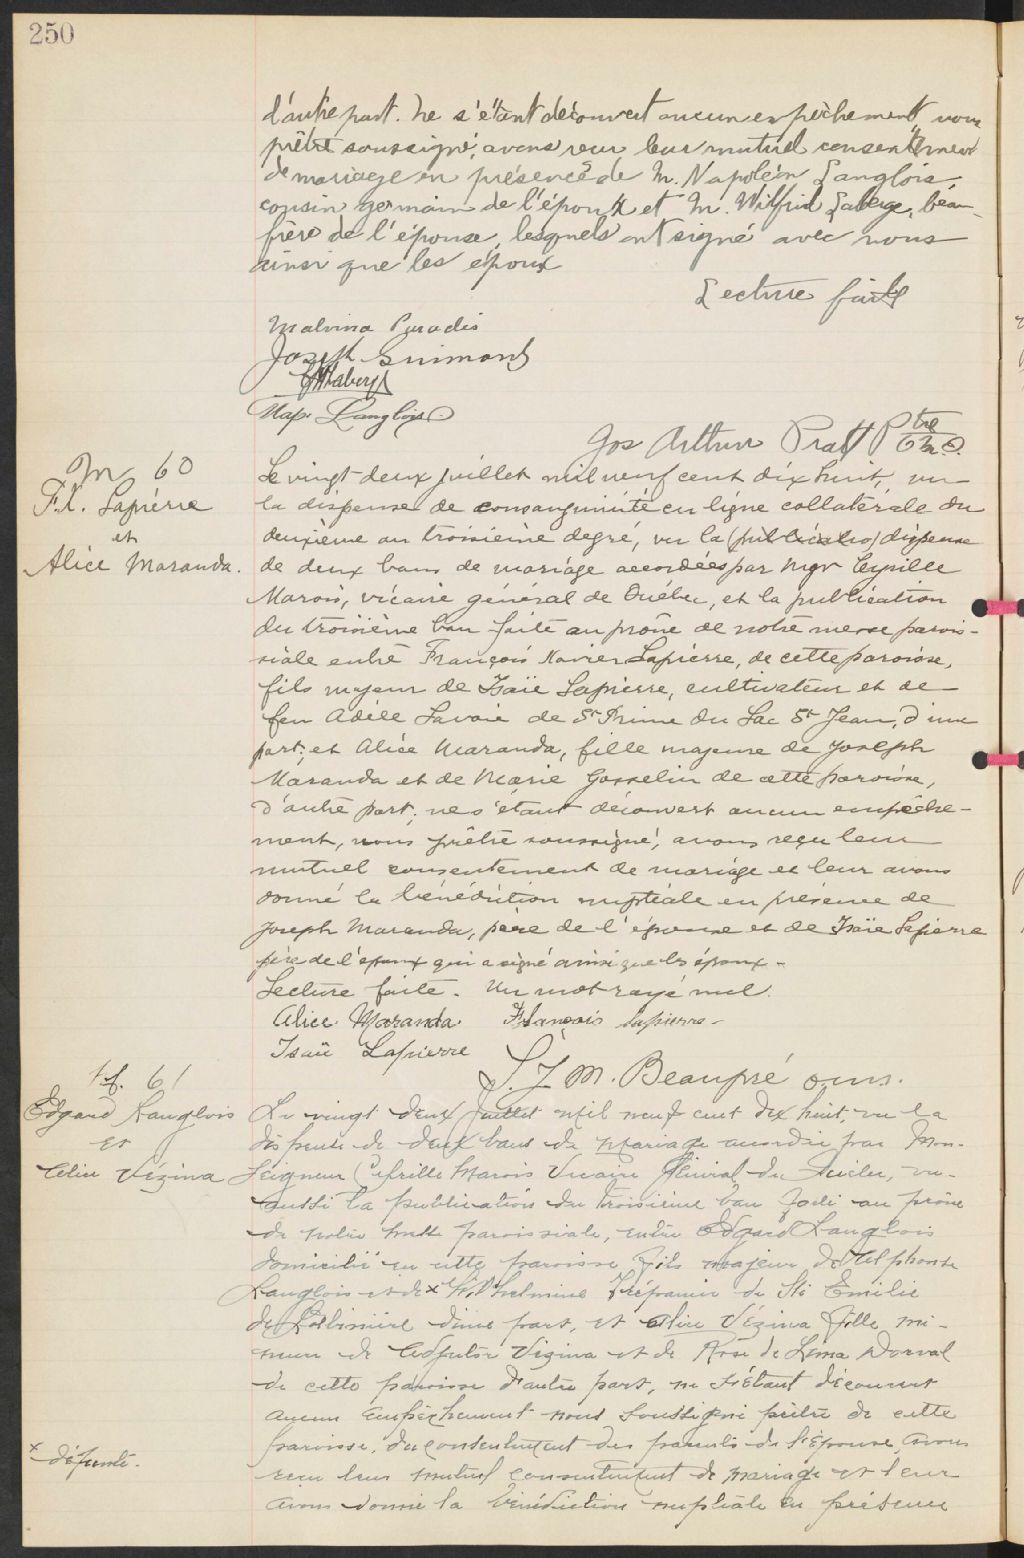 250
d'autre part. Ne s'étant découvert aucun empêchement, nous
prêtre soussigné, avons reçu leur mutuel consentement
de mariage en présence de M. Napoléon Langlois,
cousin germain de l'époux et M. Wilfrid Laberge, beau-
frère de l'épouse, lesquels ont signé avec nous
ainsi que les époux
Lecture faite
Malvina Paradis
Joseph Guimond
Laberge
Nap. Langlois
Jos Arthur Pratt Ptre
M 60
F.X. Lapierre
et
Alice Maranda.
Le vingt-deux juillet mil neuf cent dix huit, vu
la dispense de consanguinité en ligne collatérale du
deuxième au troisième degré, vu la (publication) dispense
de deux bans de mariage accordées par Mgr Cyrille
Marois, vicaire général de Québec, et la publication
du troisième ban faite au prône de notre messe parois-
siale entre François Xavier Lapierre, de cette paroisse,
fils majeur de Isaïe Lapierre, cultivateur et de
feu Adèle Savoie de St Prime du Lac St Jean, d'une
part; et Alice Maranda, fille majeure de Joseph
Maranda et de Marie Gosselin de cette paroisse,
d'autre part; ne s'étant découvert aucun empêche-
ment, nous prêtre soussigné, avons reçu leur
mutuel consentement de mariage et leur avons
donné la bénédiction nuptiale en présence de
Joseph Maranda, père de l'épouse et de Isaïe Lapierre
père de l'époux qui a signé ainsi que les époux.
Lecture faite. Un mot rayé nul.
Alice Maranda François Lapierre
Isaïe Lapierre
J. M. Beaupré o.m.i.
M. 61
Edgard Langlois
et
Célia Vézina
Le vingt deux Juillet mil neuf cent dix huit, vu la
dispense de deux bans de mariage accordée par Mon-
seigneur Cyrille Marois Vicaire Général de Québec, vu
aussi la publication du troisième ban faite au prône
de notre messe paroissiale, entre Edgard Langlois
domicilié en cette paroisse fils majeur de Alphonse
Langlois et de x Wilhelmine Trépanier de Ste Emilie
de Lotbinière d'une part, et Célia Vézina fille mi-
neure de Adjutor Vézina et de Rose de Lima Dorval
de cette paroisse d'autre part, ne s'étant découvert
aucun empêchement nous soussigné prêtre de cette
paroisse, du consentement des parents de l'épouse, avons
reçu leur mutuel consentement de mariage et leur
avons donné la bénédiction nuptiale en présence
x défunte.